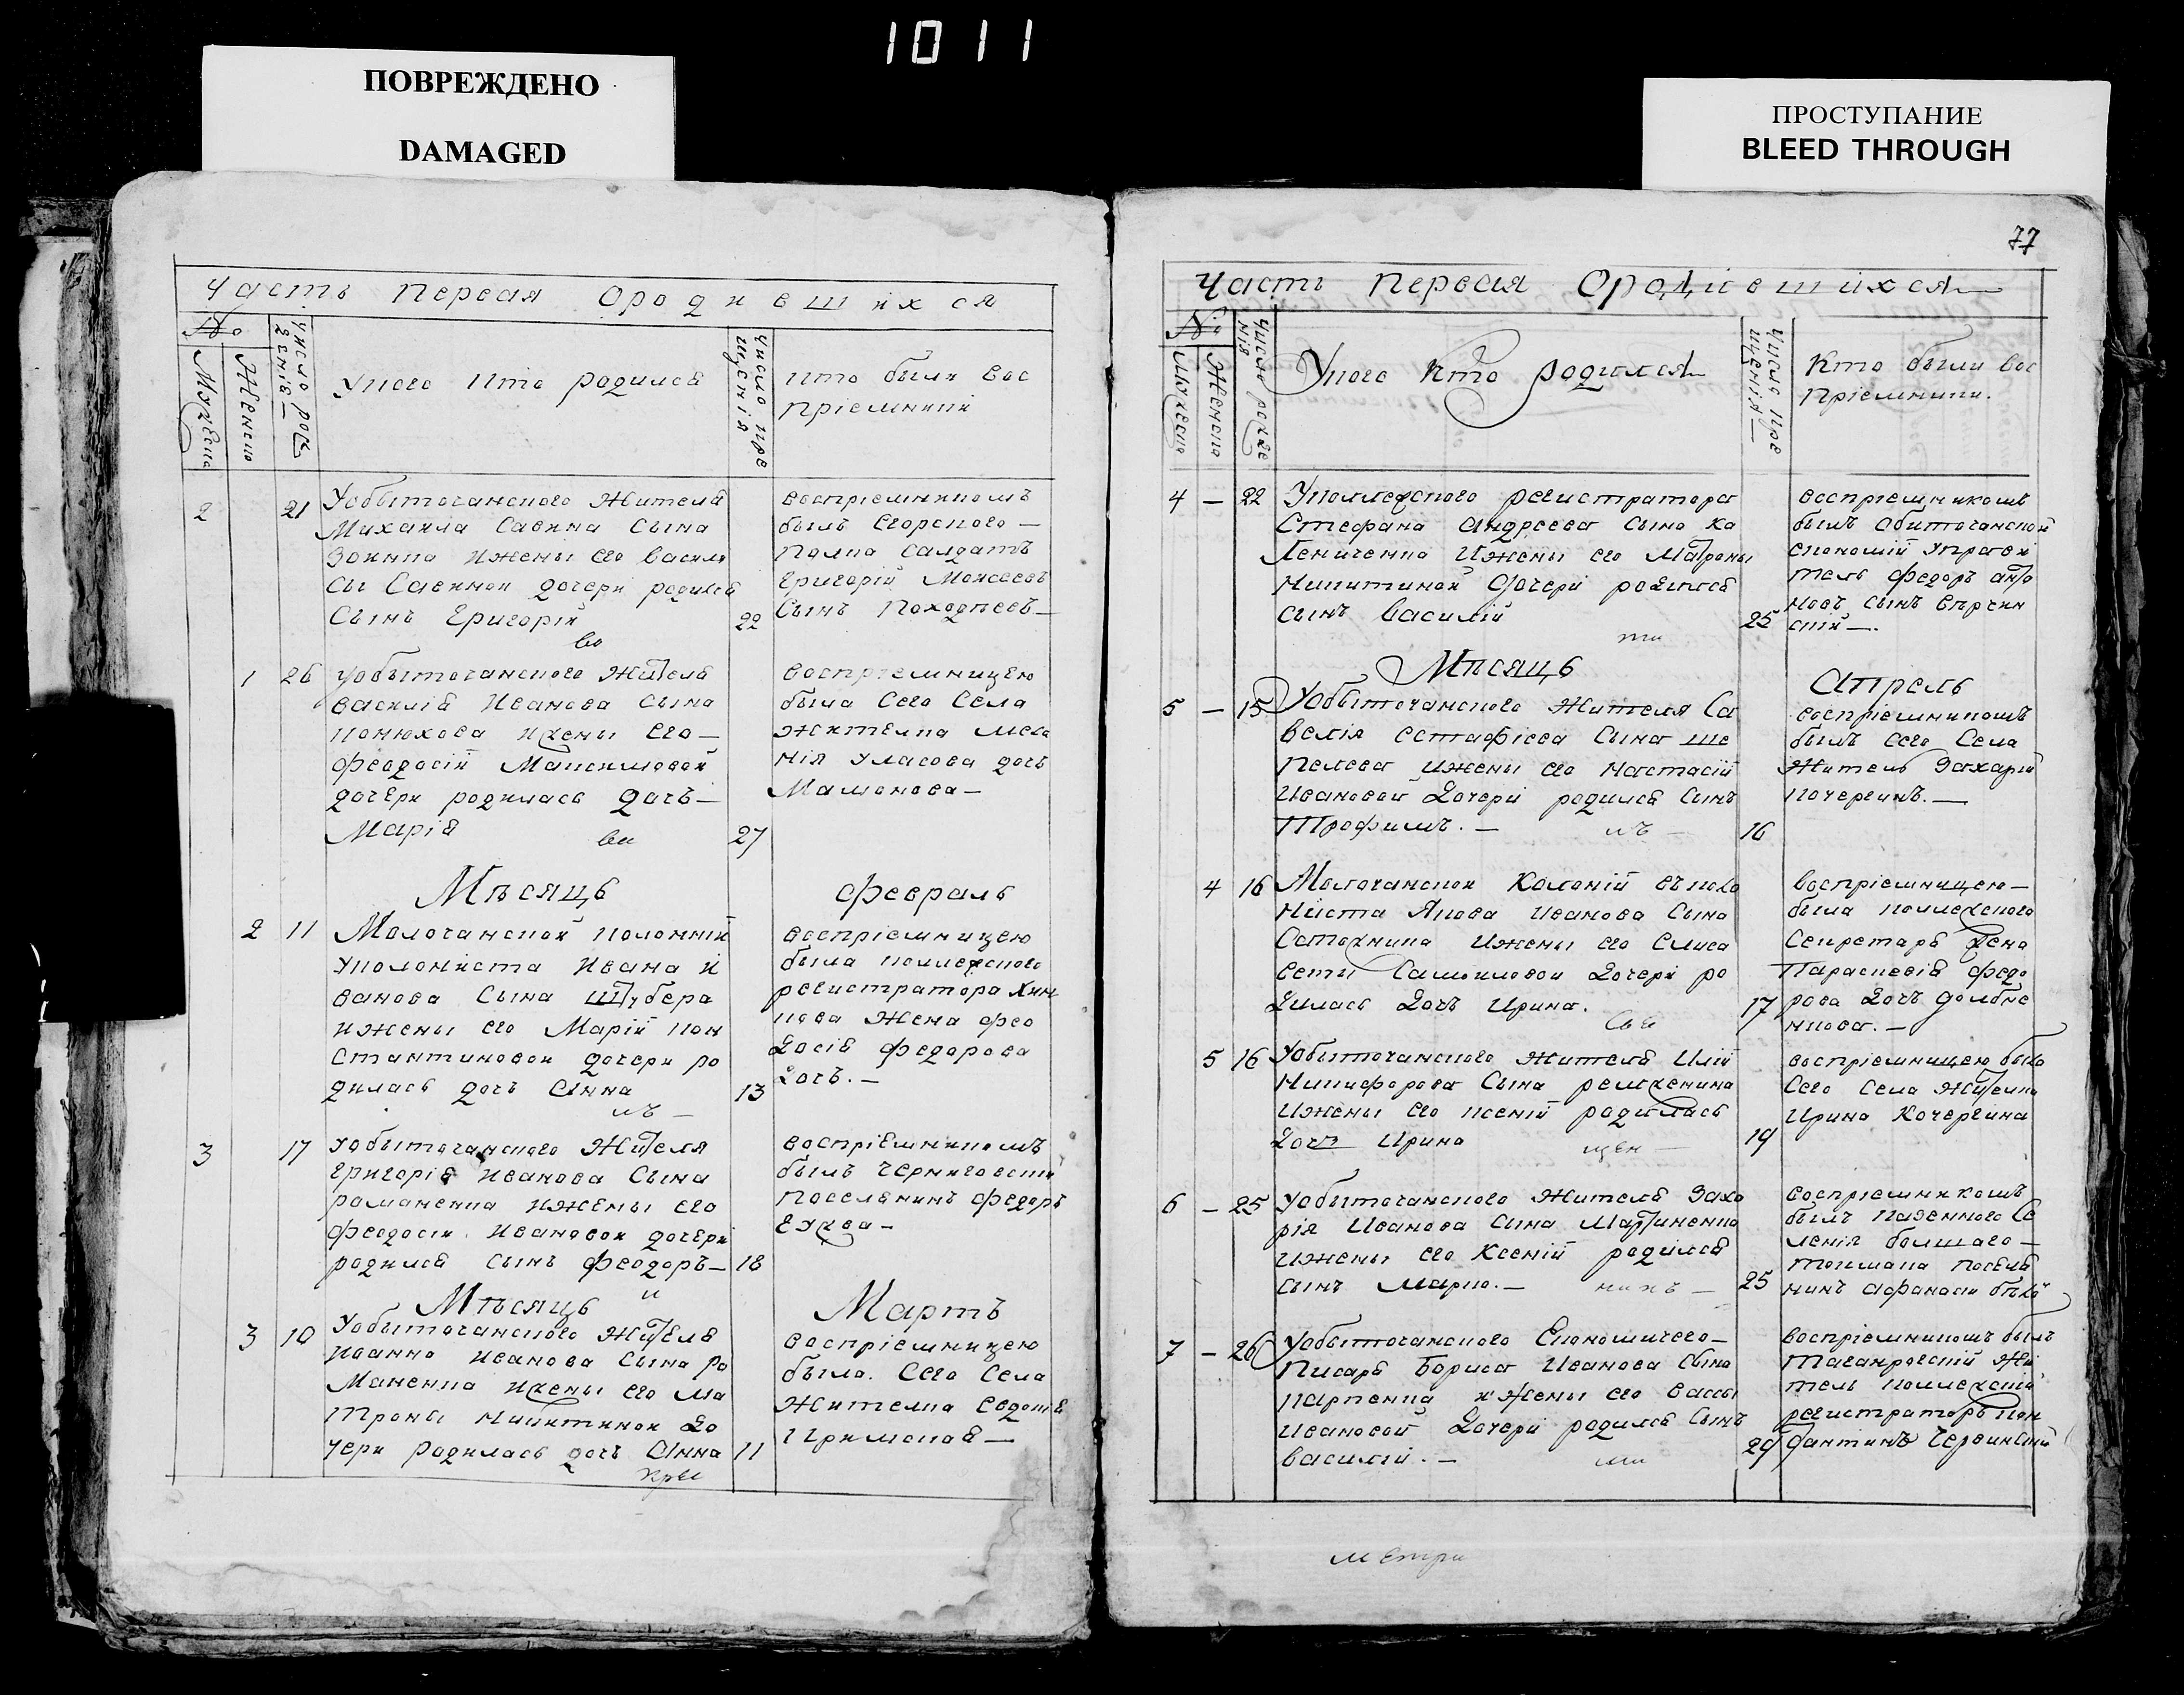 1011
ПОВРЕЖДЕНО
DAMAGED
ПРОСТУПАНИЕ
BLEED THROUGH
Часть Первая Ородившихся
№
Мужеска
Женска
Число рож
дения
Укого Кто родился
число кре
щения
Кто были вос
Пріемники
2 21 Уобыточанского Жителя
Михаила Савина Сына
Зоинка Ижены его васили
сы Савиной дочери родился
Сынъ Григорій 22
воспріемникомъ
былъ Егорского —
Полка Салдатъ
Григорій Моисеевъ
Сынъ Походнеевъ —
во
1 26 Уобыточанского Жителя
василія Иванова Сына
Конюхова Ижены Его —
Феодосіи Максимовой
дочери родилась дочь —
Марія 27
воспріемницею
была Сего Села
жителка Мела
нія Уласова дочь
Мамонова —
ви
Мѣсяцъ Февраль
2 11 Молочанской колонній
Уколониста Ивана И
ванова Сына Штубера
Ижены его Марій Кон
стантиновой дочери ро
дилась дочь Анна 13
воспріемницею
была коллежского
регистратора Хим
кова Жена Фео
досія Федорова
дочь. —
къ —
3 17 Уобыточанского Жителя
Григорія Иванова Сына
романенка Ижены его
Феодосіи Ивановой дочери
родился сынъ Феодоръ — 18
воспріемникомъ
былъ Черниговскій
Поселянинъ Федоръ
и
Мѣсяцъ Мартъ
3 10 Уобыточанского Жителя
Иванна Иванова Сына Ро
маненка Ижены его Ма
троны Никитиной до
чери родилась дочь Анна 11
воспріемницею
была Сего Села
Жителка Евдокія
Кримская —
кре
77
Часть Первая Ородившихся
№
Мужеска
Женска
Число рожде
нія
Укого Кто родился
Число кре
щенія
Кто были вос
Пріемники.
4 — 22 Уколлежского регистратора
Стефана Андреева Сына Ка
лениченка Ижены его Матроны
Никитиной дочери родился
сынъ Василій 25
воспріемникомъ
былъ Обиточанской
економій Управи
тель Федоръ анто
новъ сынъ Вѣрчин
скій —.
ти
Мѣсяцъ Апрель
5 — 15 Уобыточанского Жителя Са
велія Естафіева Сына Ше
Пелева Ижены его Настасій
Ивановой дочери родился Сынъ
Трофимъ. — 16
воспріемникомъ
былъ Сего Села
Житель Захарій
Кочергинъ. —
къ —
4 16 Молочанской Колоній Ѣъколо
ниста Якова Иванова Сына
Ижены его Елиса
веты Самойловой дочери ро
дилась дочь Ирина. 17
воспріемницею —
была коллежского
Секретаря Жена
Параскевія Федо
рова дочь долбне
нкова. —
5 16 Уобыточанского Жителя Илій
Никифорова Сына
Ижены его Ксеній родилась
дочь Ирина 19
воспріемницею была
Сего Села Жителка
Ирина Кочергина
щен —
6 — 25 Уобыточанского Жителя Заха
рія Иванова Сына Мартиненка
Ижены его Ксеній родился
сынъ Марко. — 25
воспріемникомъ
былъ Казенного Се
ленія болшаго —
Токмака Поселя
нинъ Афанасій
нихъ —
7 — 26 Уобыточанского Економичего —
Писаря Бориса Иванова Сына
карпенка и Жены его Вассы
Ивановой дочери родился Сынъ
Василій. — 29
воспріемникомъ былъ
Таганрогскій Жи
тель коллежскій
регистраторъ Кон
стантинъ Червинскій
ми
метри